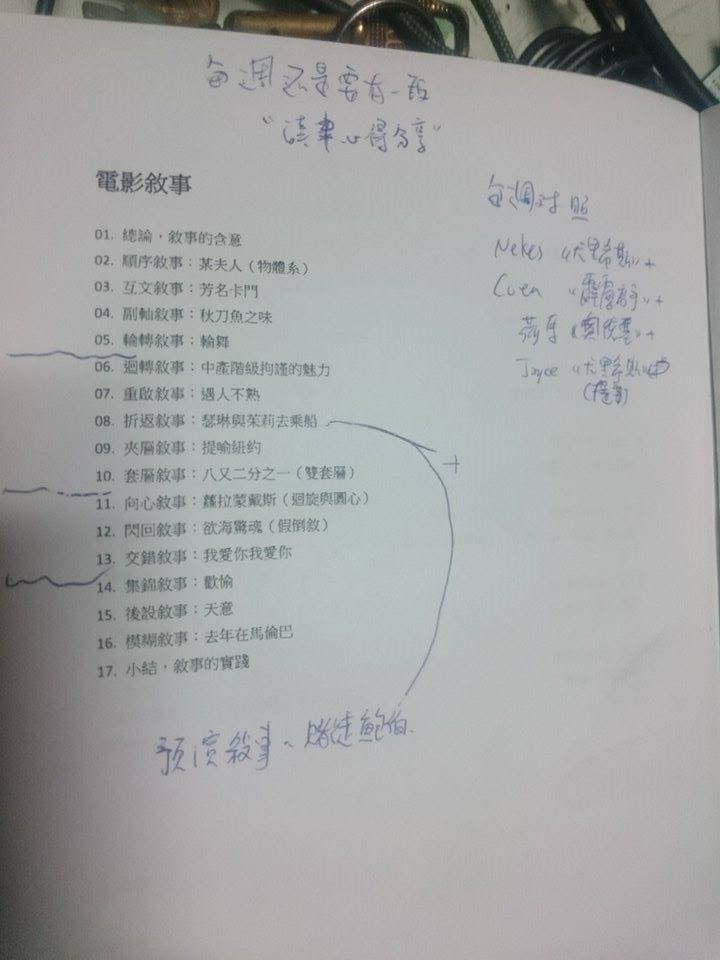 每週還是要有一段
"讀書心得分享"
電影敘事
每週對照
01. 總論，敘事的含意
02. 順序敘事：某夫人（物體系）
03. 互文敘事：芳名卡門
04. 副軸敘事：秋刀魚之味
05. 輪轉敘事：輪舞
06. 迴轉敘事：中產階級拘謹的魅力
07. 重啟敘事：遇人不熟
08. 折返敘事：瑟琳與茱莉去乘船
09. 夾層敘事：提喻紐約
10. 套層敘事：八又二分之一（雙套層）
11. 向心敘事：蘿拉蒙戴斯（迴旋與圓心）
12. 閃回敘事：欲海驚魂（假倒敘）
13. 交錯敘事：我愛你我愛你
14. 集錦敘事：歡愉
15. 後設敘事：天意
16. 模糊敘事：去年在馬倫巴
17. 小結，敘事的實踐
Nekes 《尤里西斯》+
荷馬《奧德賽》+
Joyce
+
預演敘事、賭徒鮑伯.